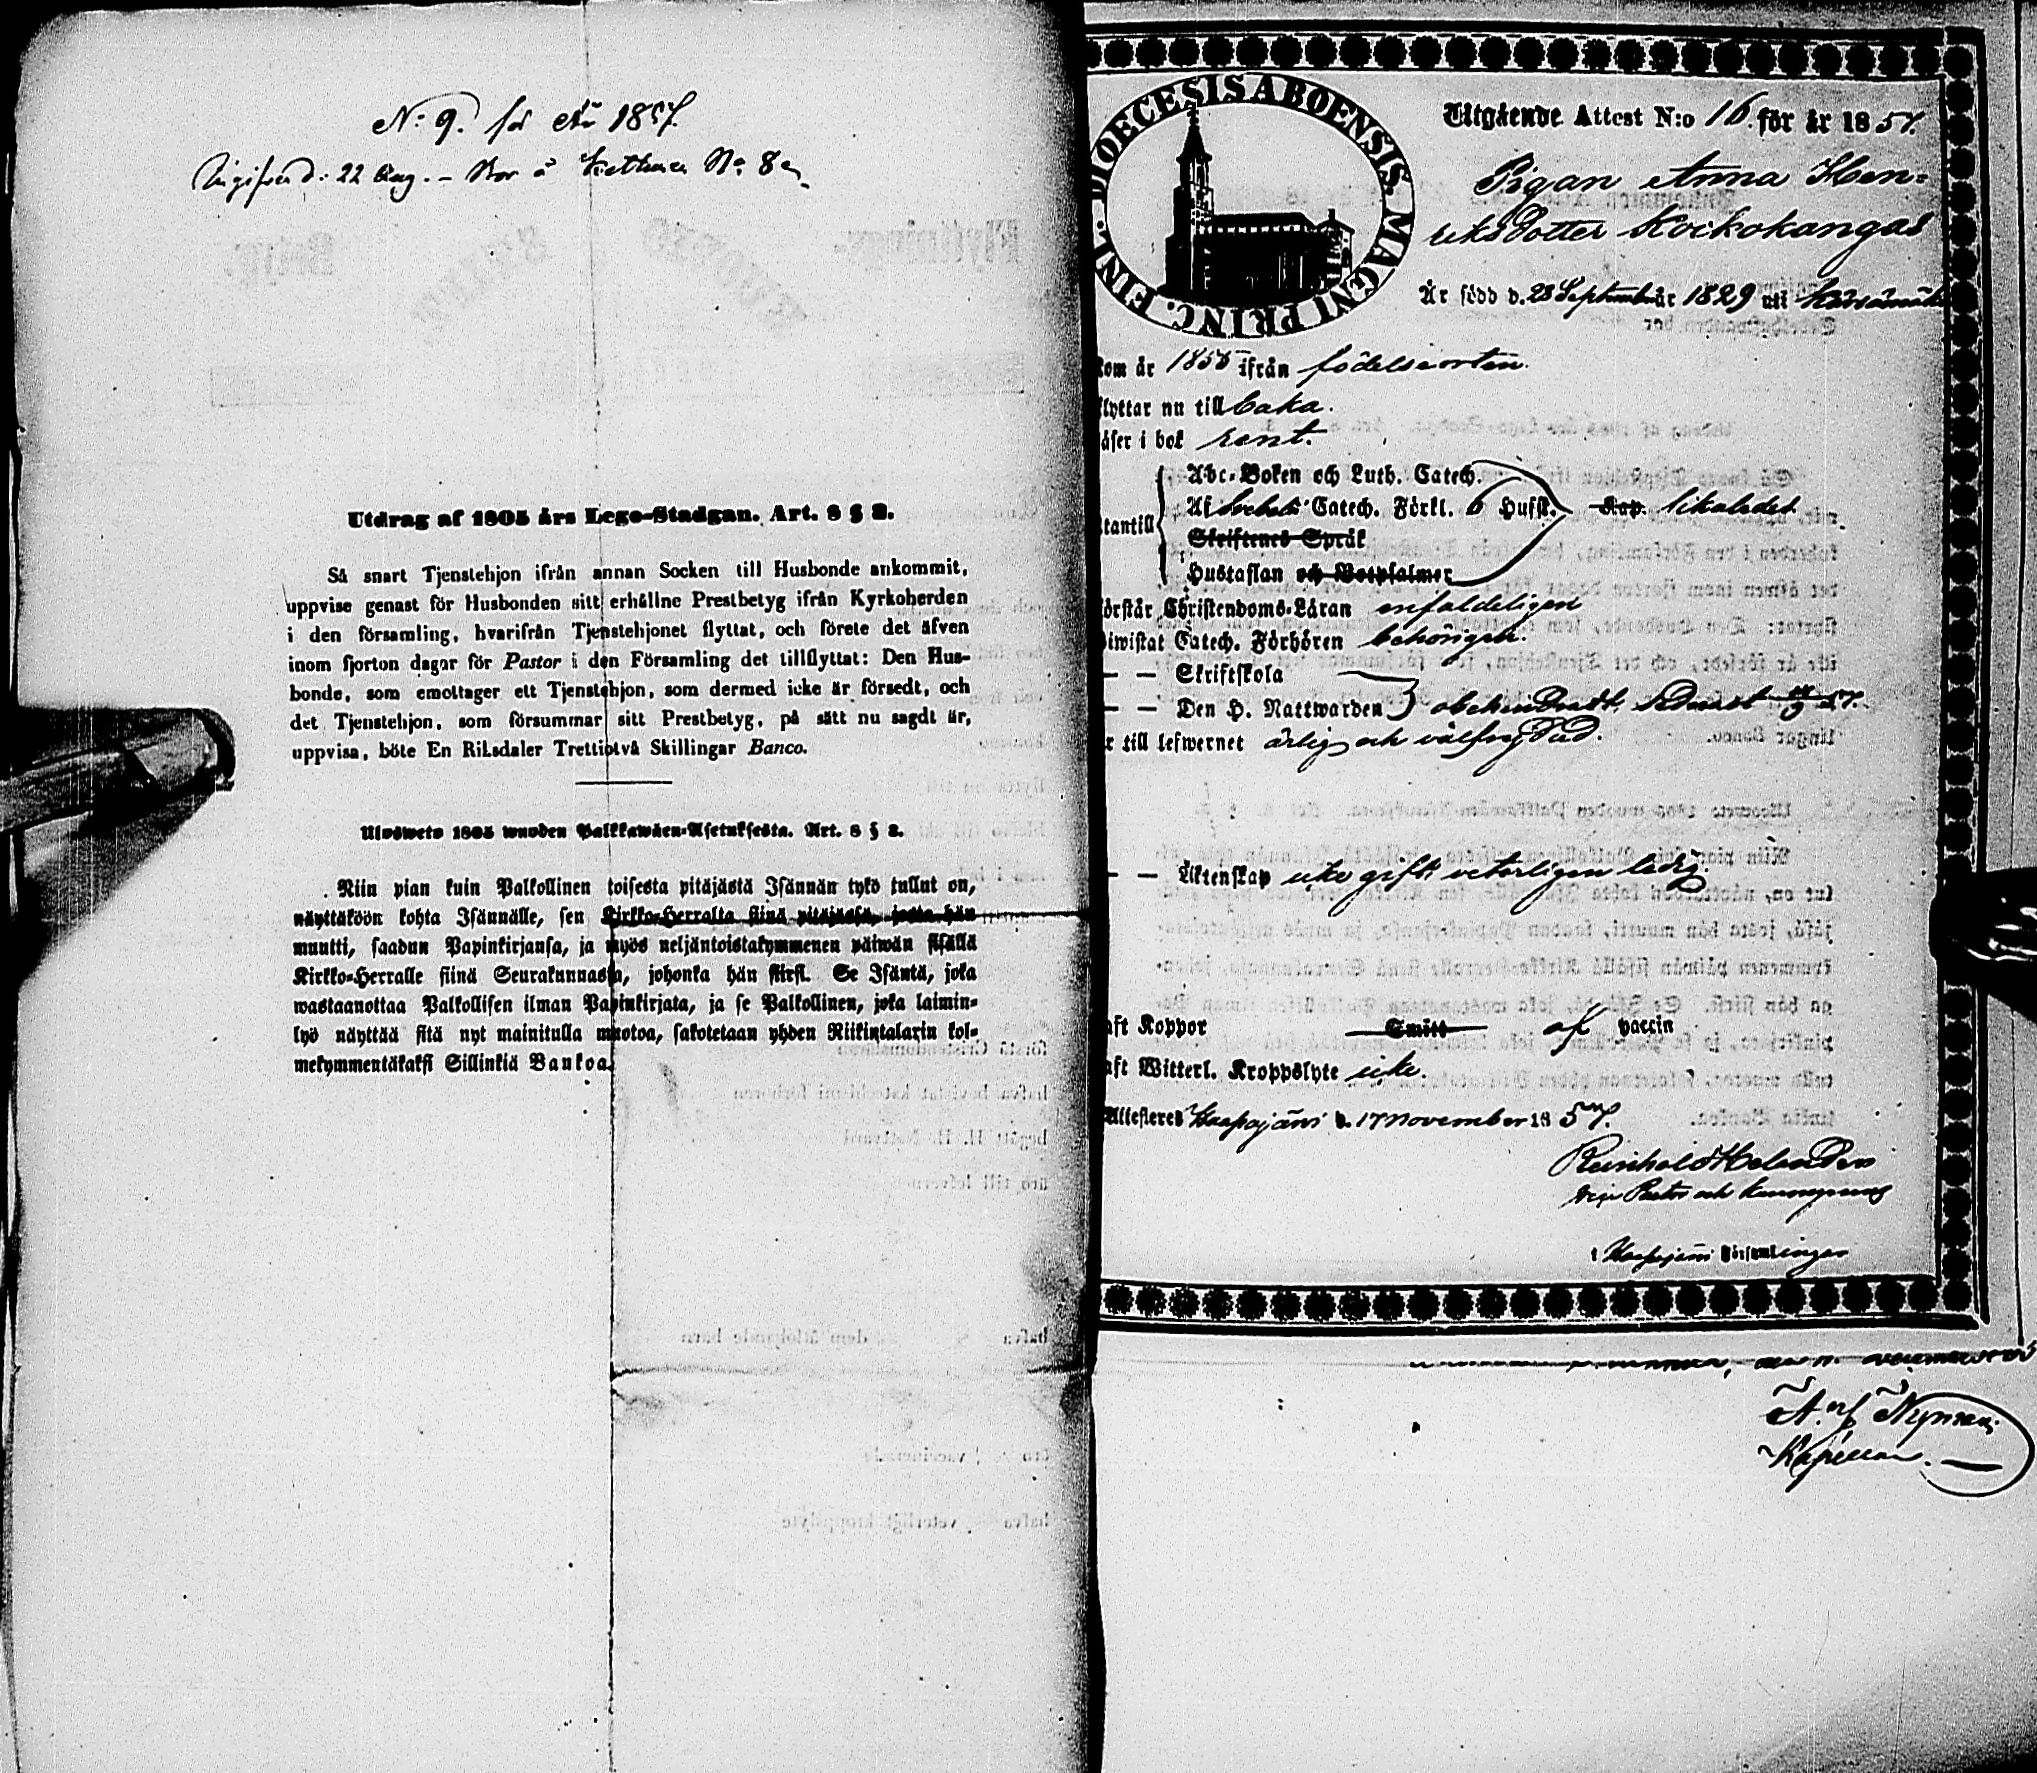 N:o 9. för år 1857.
d: 22 Aug. – Bor å No 8
Utdrag af 1805 års Lego-Stadgan. Art. 8 § 8.
Så snart Tjenstehjon ifrån annan Socken till Husbonde ankommit,
uppvise genast för Husbonden sitt erhållne Prestbetyg ifrån Kyrkoherden
i den församling, hvarifrån Tjenstehjonet flyttat, och förete det äfven
inom fjorton dagar för Pastor i den Församling det tillflyttat: Den Hus-
bonde, som emottager ett Tjenstehjon, som dermed icke är försedt, och
det Tjenstehjon, som försummar sitt Prestbetyg, på sätt nu sagdt är,
uppvisa, böte En Riksdaler Trettiotvå Skillingar Banco.
Ulosweto 1805 wuoden Palkkawäen-Asetuksesta. Art. 8 § 8.
Niin pian kuin Palkollinen toisesta pitäjästä Isännän tykö tullut on,
näyttäköön kohta Isännälle, sen Kirkko-Herralta siinä pitäjässä, josta hän
muutti, saadun Papinkirjansa, ja myös neljäntoistakymmenen päiwän sisällä
Kirkko-Herralle siinä Seurakunnassa, johonka hän siirsi. Se Isäntä, joka
wastaanottaa Palkollisen ilman Papinkirjata, ja se Palkollinen, joka laimin-
lyö näyttää sitä nyt mainitulla muotoa, sakotetaan yhden Riikintalarin kol-
mekymmentäkaksi Sillinkiä Bankoa.
DIOECESIS ABOENSIS. MAGNI PRINC. FINL.
Utgående Attest N:o 16. för år 1857.
Pigan Anna Hen-
riksdotter Kockokangas
Är född d. 28 September år 1829 uti Kärsämäki
kom år 1856 ifrån födelseorten.
flyttar nu till baka.
läser i bok rent.
Abc-Boken och Luth. Catech.
utantill Af Catech. Förkl. 6 Hufst. Kap. likaledes.
Skriftenes Språk
Hustaflan och Botpsalmer
förstår Christendoms-Läran enfaldeligen
biwistat Catech. Förhören behörigen.
— — Skriftskola
— — Den H. Nattwarden obehindradt, sednast 57.
är till lefwernet ärlig och välfrejdad.
— — Äktenskap icke gift veterligen ledig.
haft Koppor Smitt af vaccin
haft Witterl. Kroppslyte icke.
Attesteres Haapajärvi d. 17 November 1857.
Reinhold Helander
Vice Pastor och
i Haapajärvi Församlingar
Nyman
Kapellan.